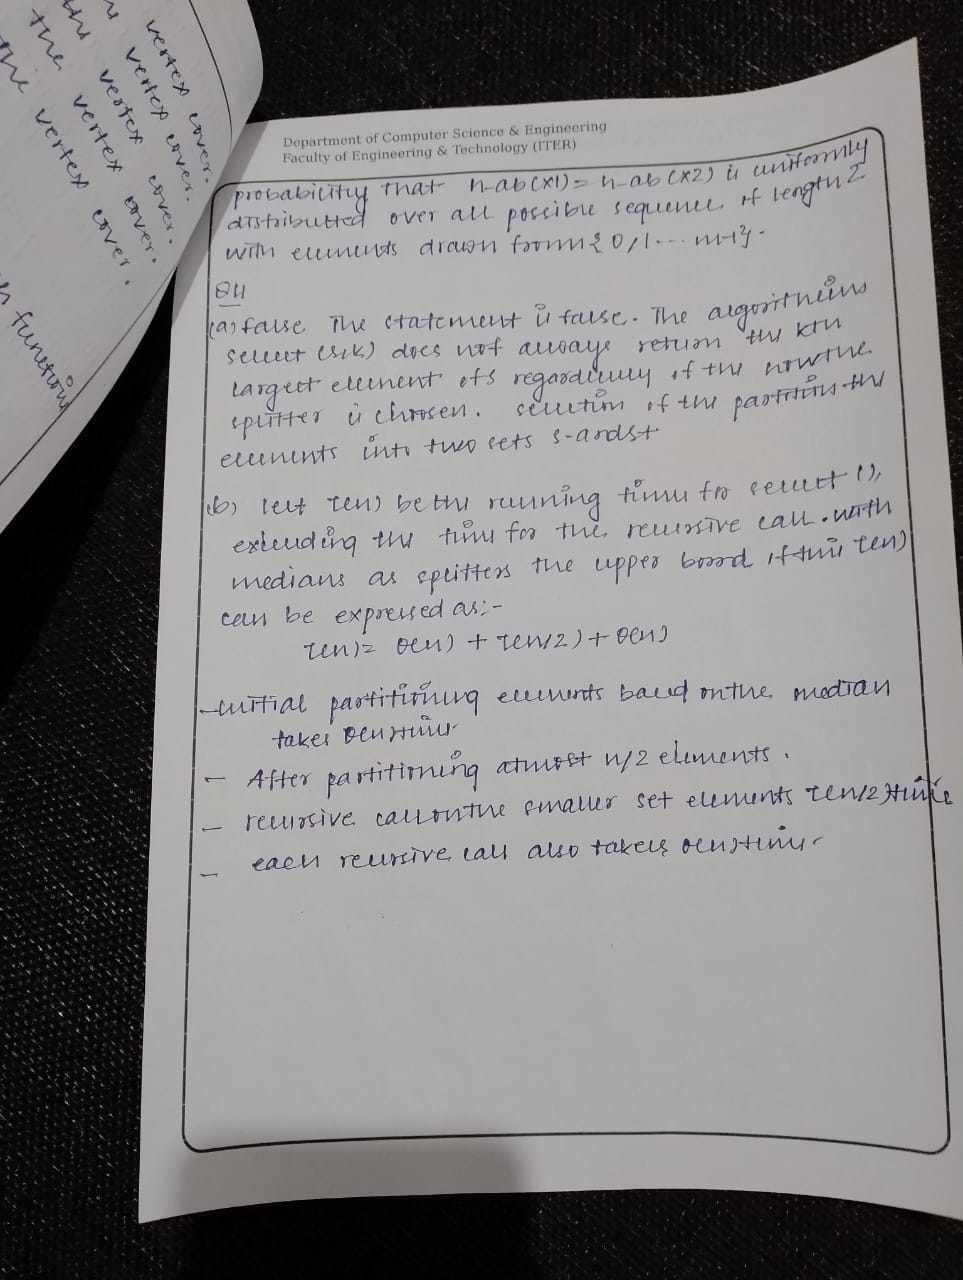 vertex cover.
vertex cover.
vertex cover.
the vertex cover.
the vertex cover.
function
Department of Computer Science & Engineering
Faculty of Engineering & Technology (ITER)
probability that h-ab(x1) = h-ab(x2) is uniformly
distributted over all possible sequence of length 2
with elements drawn from { 0,1... m-1}.
Q4
(a) false The statement is false. The algorithms
select (s,k) does not always return the kth
largest element of s regardlessly of the howthe
splitter is chosen. selection of the partition the
elements into two sets s- and s+
(b) let T(n) be the running time for select (),
excluding the time for the recursive call. with
medians as splitters the upper board of this T(n)
can be expressed as:-
T(n) = θ(n) + T(n/2) + θ(n)
- initial partitioning elements based on the median
takes θ(n) time
- After partitioning atmost n/2 elements.
- recursive call on the smaller set elements T(n/2) time
- each recursive call also takes θ(n) time